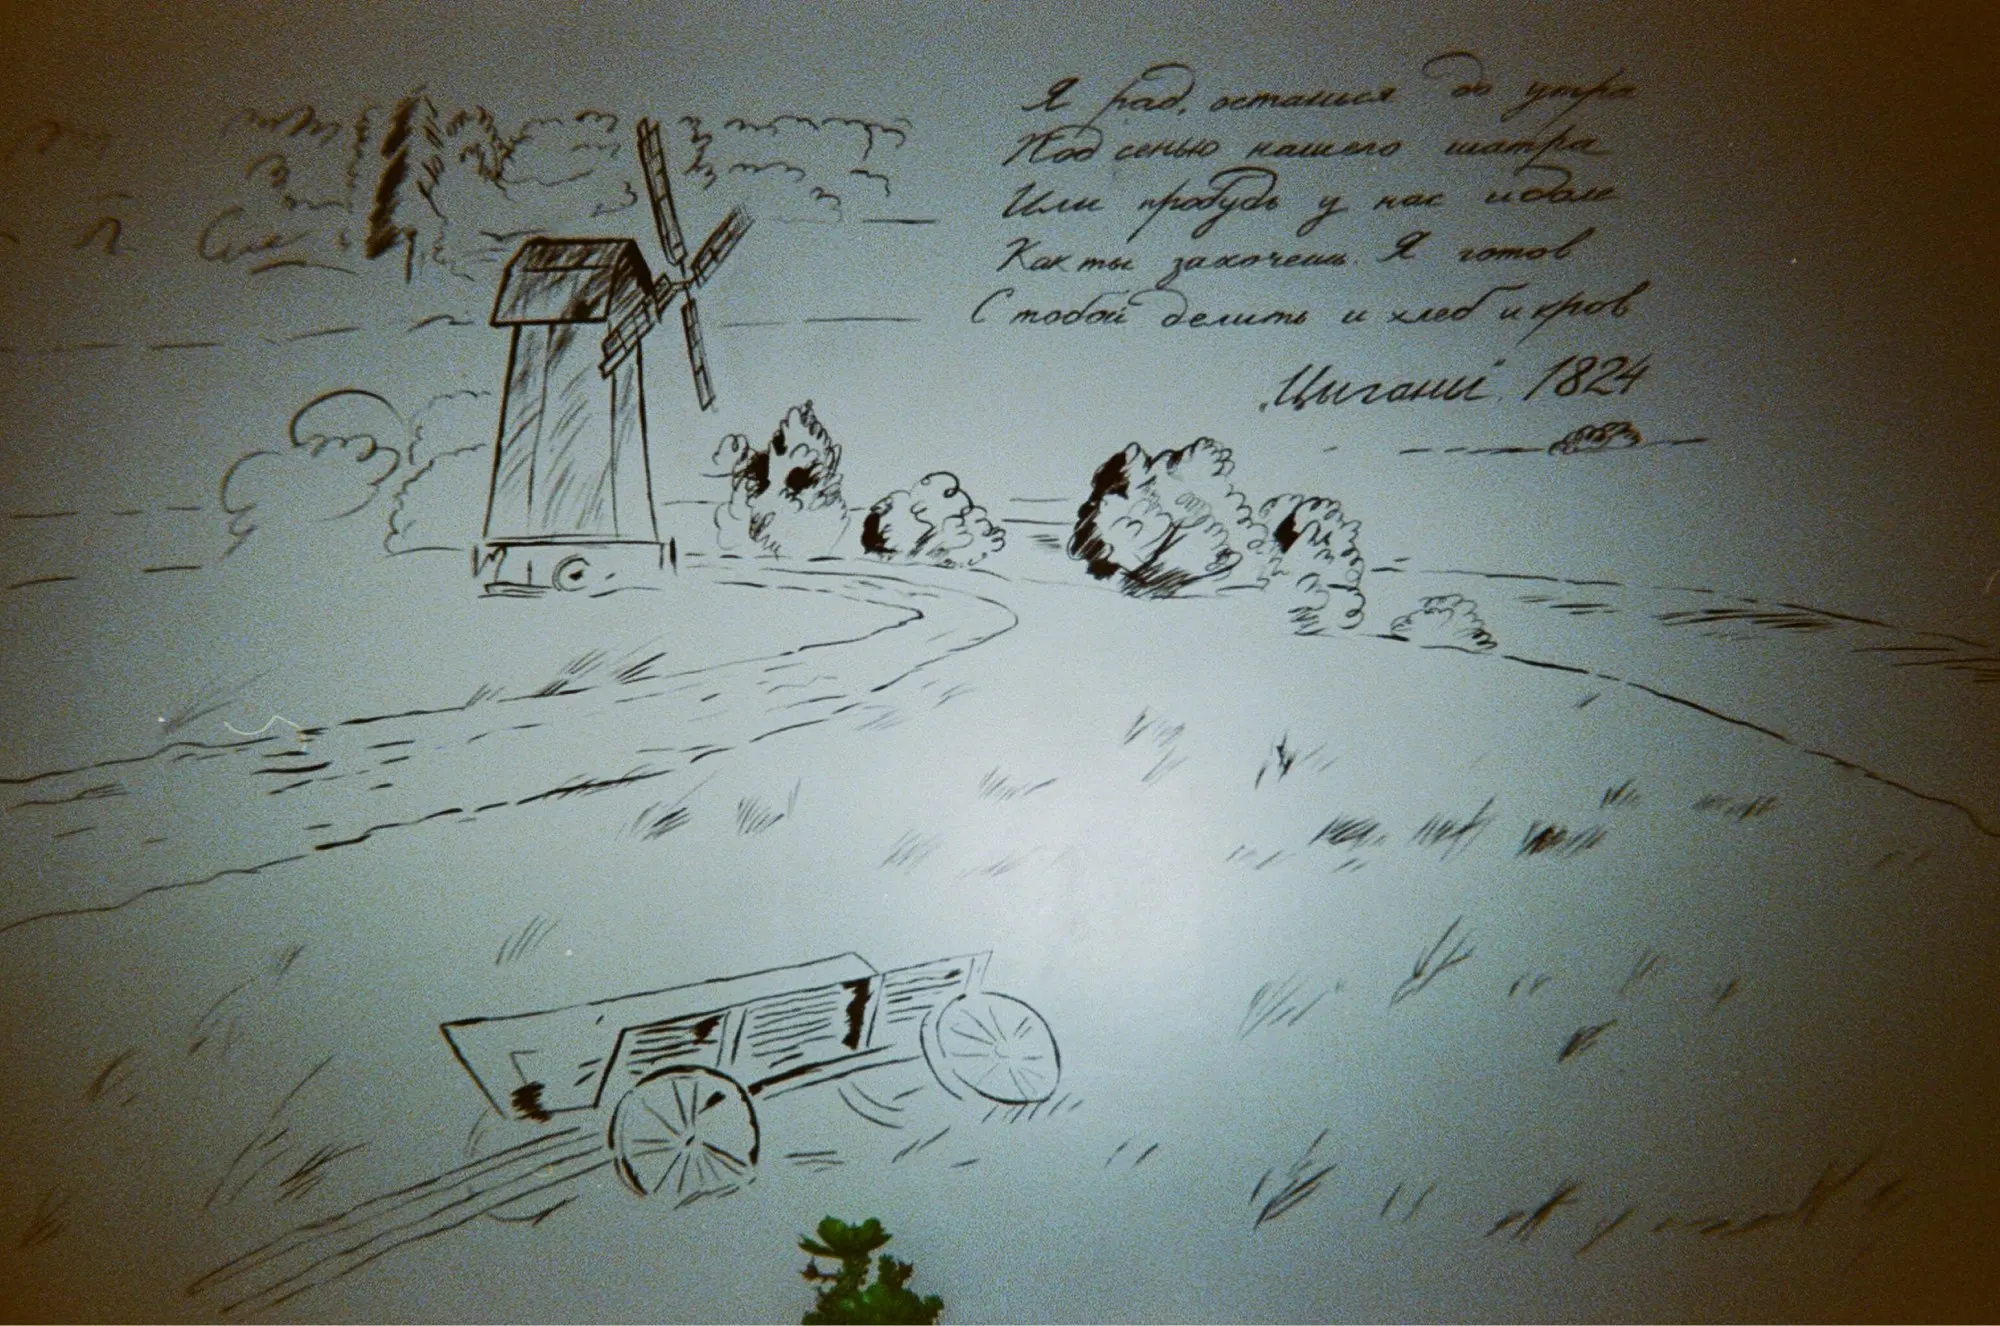 Я рад, останься до утра
Под сенью нашего шатра
Или пробудь у нас и доле
Как ты захочешь. Я готов
С тобой делить и хлеб и кров
"Цыганы" 1824